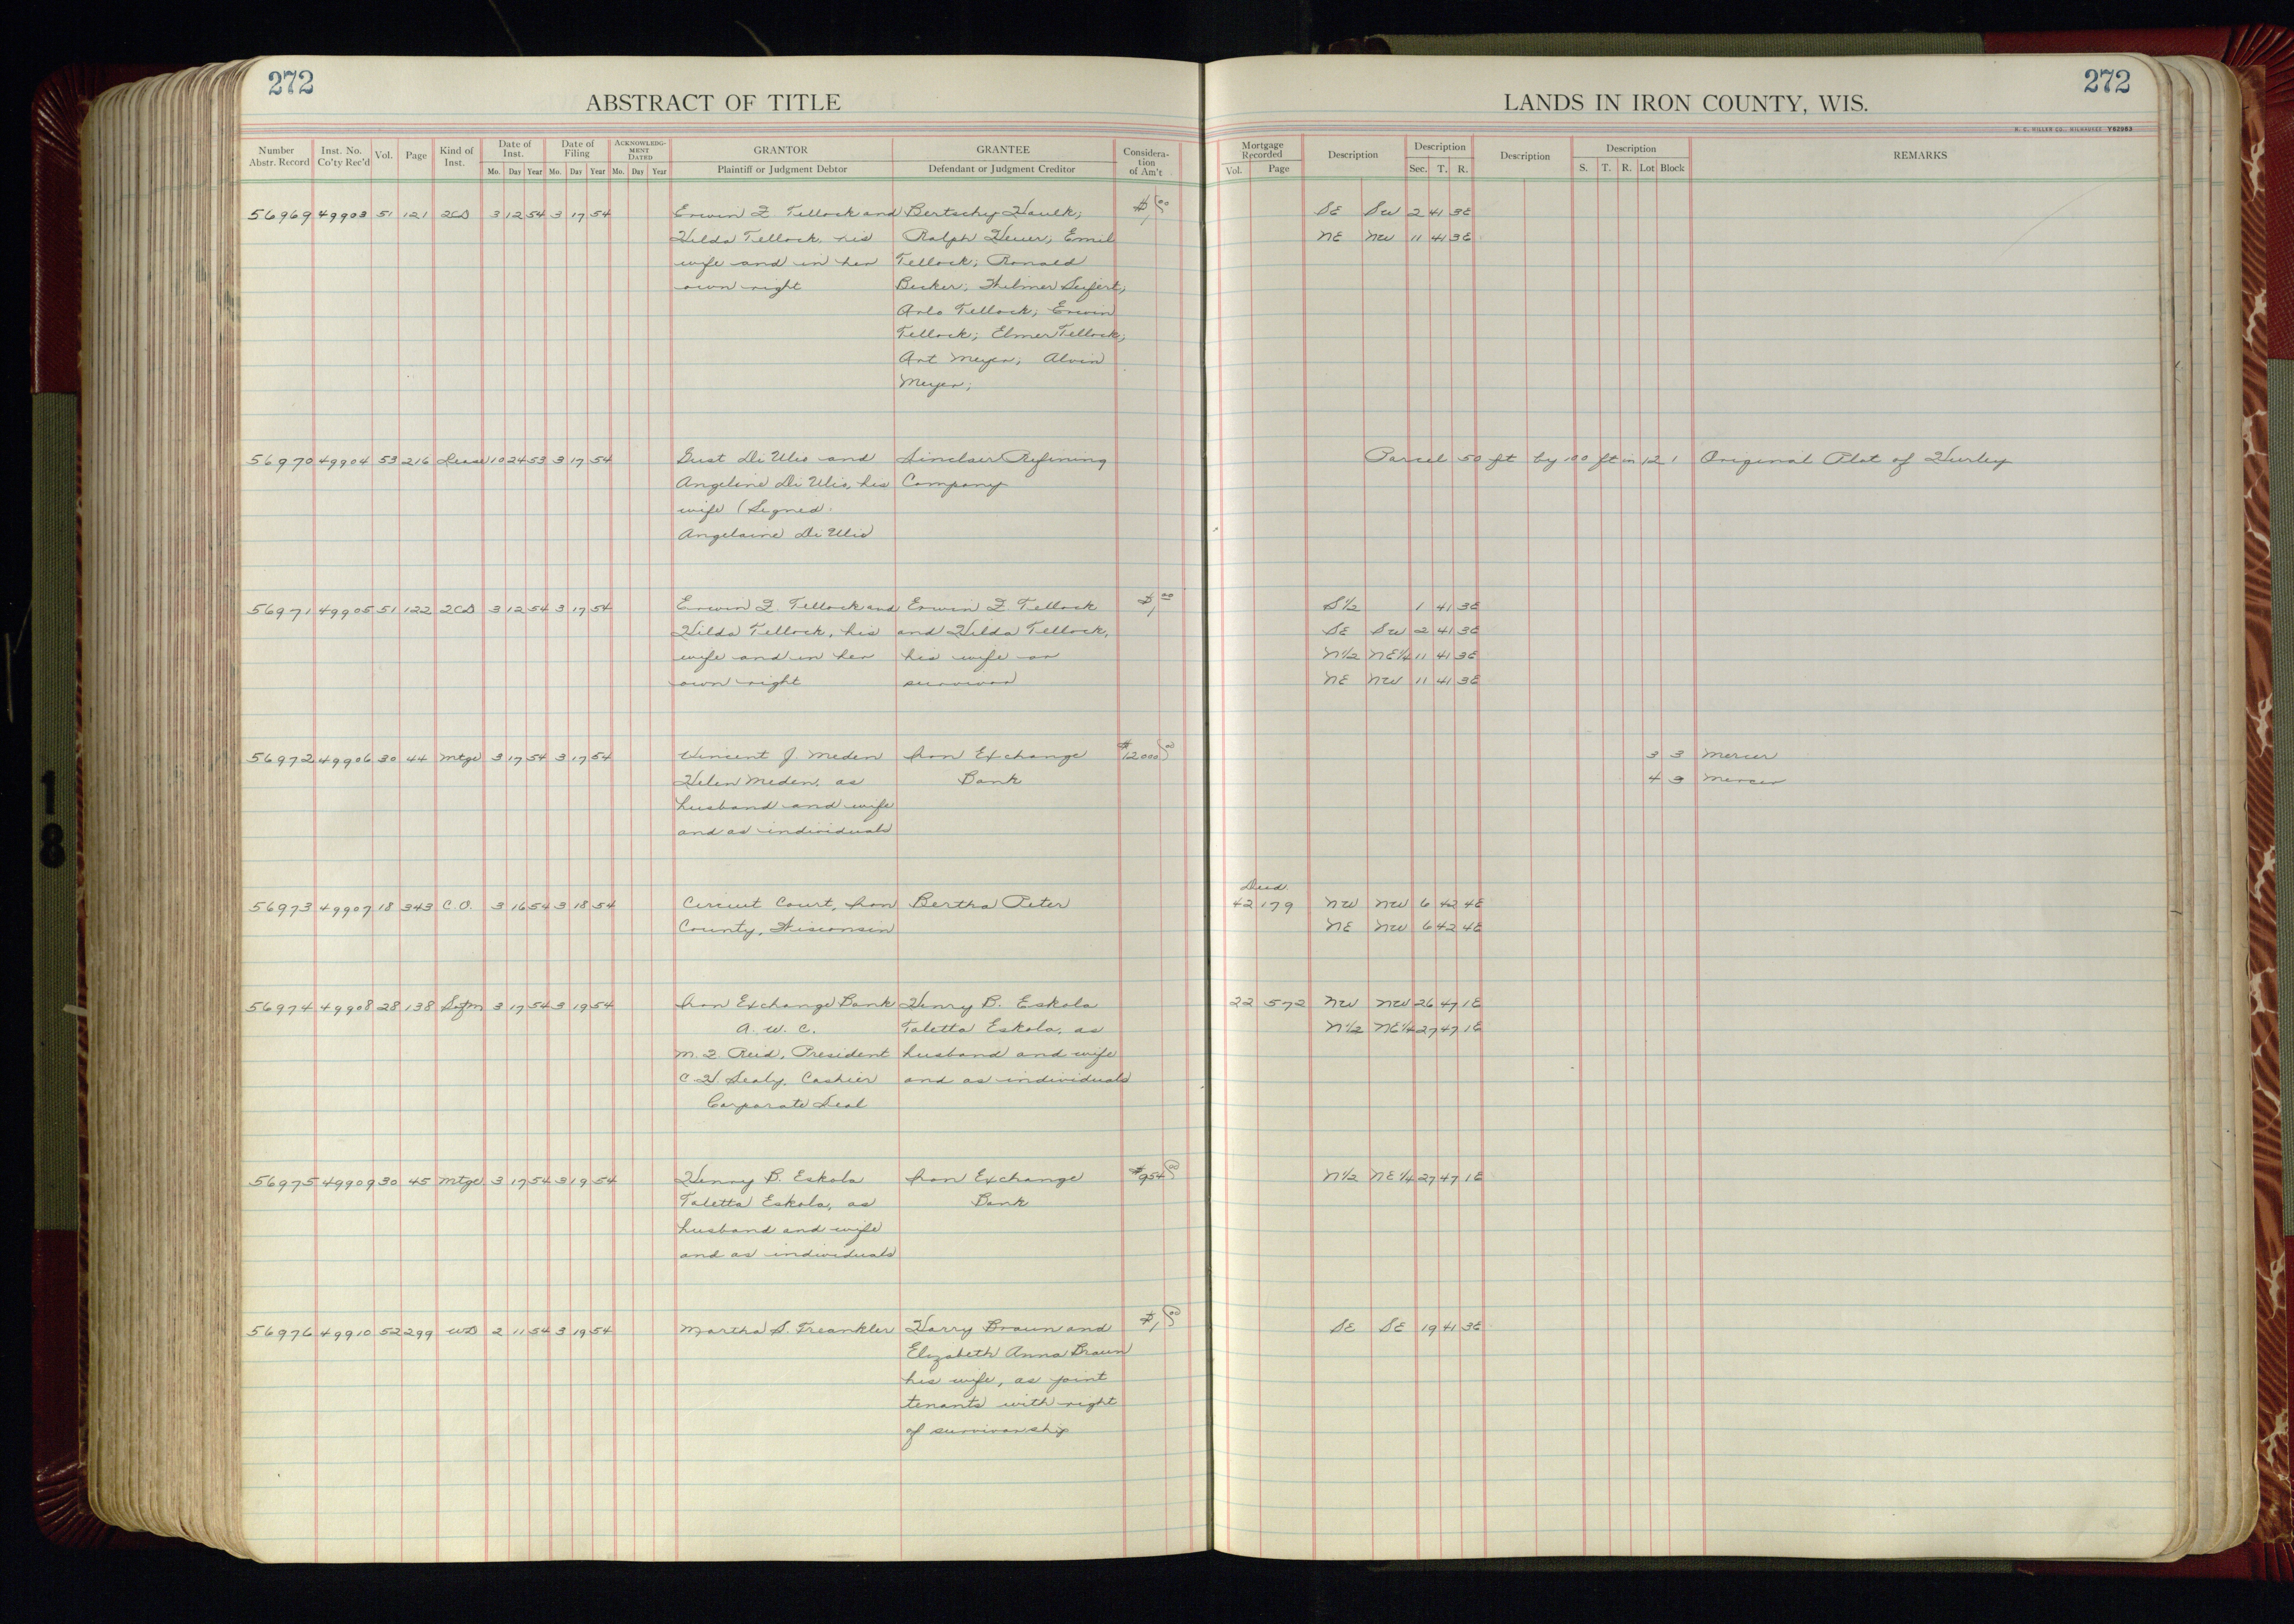 272
ABSTRACT OF TITLE
LANDS IN IRON COUNTY, WIS.
272
H. C. MILLER CO., MILWAUKEE Y62963
Number Abstr. Record Inst. No. Co'ty Rec'd Vol. Page Kind of Inst. Date of Inst. Mo. Day Year Date of Filing Mo. Day Year ACKNOWLEDGMENT DATED Mo. Day Year GRANTOR Plaintiff or Judgment Debtor GRANTEE Defendant or Judgment Creditor Consideration of Am't Mortgage Recorded Vol. Page Description Description Sec. T. R. Description Description S. T. R. Lot Block REMARKS
56969 49903 51 121 2CD 3 12 54 3 17 54 Erwin F. Tellock and Bertschy Haulk; $1,00 SE SW 2 41 3E
Hilda Tellock, his Ralph Heuer; Emil NE NW 11 41 3E
wife and in her Tellock; Ronald
own right Becker; Thelmer Seifert;
Arlo Tellock; Erwin
Tellock; Elmer Tellock;
Art Meyer; Alvin
Meyer;
56970 49904 53 216 Lease 10 24 53 3 17 54 Gust Di Ulio and Sinclair Refining Parcel 50 ft by 100 ft in 12 1 Original Plat of Hurley
Angeline Di Ulio, his Company
wife (Signed
Angelaine Di Ulio
56971 49905 51 122 2CD 3 12 54 3 17 54 Erwin F. Tellock and Erwin F. Tellock $1,00 S1/2 1 41 3E
Hilda Tellock, his and Hilda Tellock, SE SW 2 41 3E
wife and in her his wife or N1/2 NE1/4 11 41 3E
own right survivor NE NW 11 41 3E
56972 49906 30 44 Mtge 3 17 54 3 17 54 Vincent J. Meden Iron Exchange $12000 00 3 3 Mercer
Helen Meden, as Bank 4 3 Mercer
husband and wife
and as individuals
Deed
56973 49907 18 343 C.O. 3 16 54 3 18 54 Circuit Court, Iron Bertha Peter 42 179 NW NW 6 42 4E
County, Wisconsin NE NW 6 42 4E
56974 49908 28 138 Satfn 3 17 54 3 19 54 Iron Exchange Bank Henry B. Eskola 22 572 NW NW 26 47 1E
A. W. C. Taletta Eskola, as N1/2 NE1/4 27 47 1E
M. F. Reid, President husband and wife
C. H. Sealy, Cashier and as individuals
Corporate Seal
56975 49909 30 45 Mtge 3 17 54 3 19 54 Henry B. Eskola Iron Exchange $954 00 N1/2 NE1/4 27 47 1E
Taletta Eskola, as Bank
husband and wife
and as individuals
56976 49910 52 299 WD 2 11 54 3 19 54 Martha S. Treankler Harry Braun and $1,00 SE SE 19 41 3E
Elizabeth Anna Braun
his wife, as joint
tenants with right
of survivorship
18